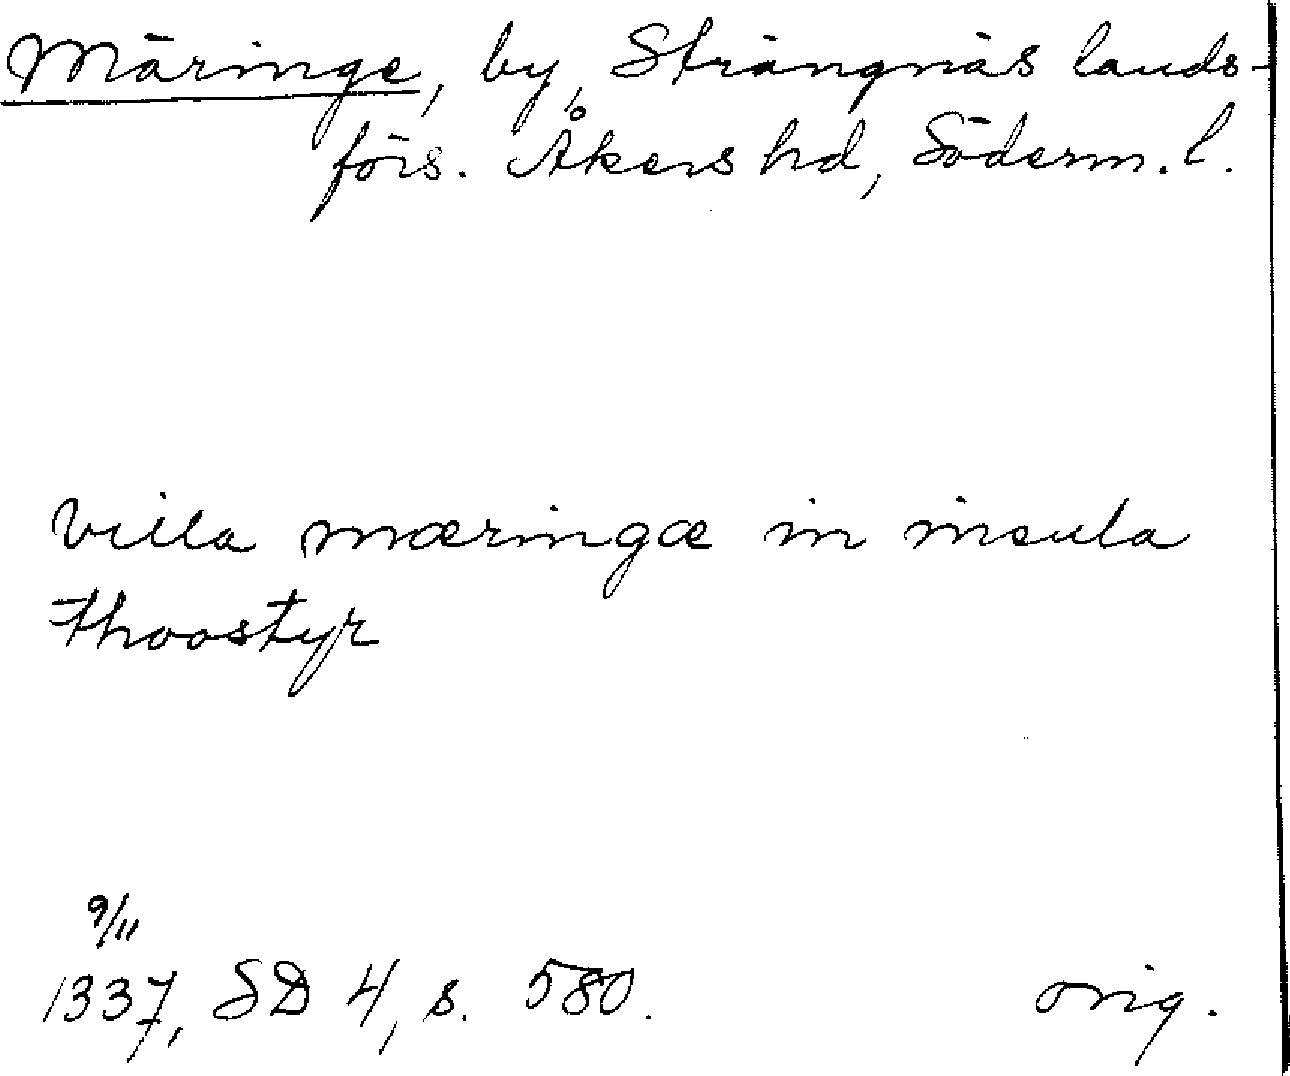 Märinge, by, Strängnäs lands-
förs. Åkers hd, Söderm. l.
Villa mæringæ in insula
thoostyr
9/11
1337, SD 4, s. 580. orig.